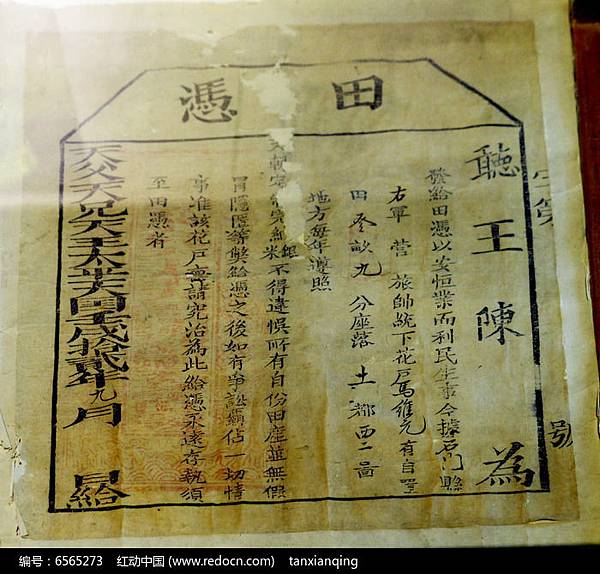 田憑
字第
號
聽王陳為
發給田憑以安恒業而利民生事今據石門縣
右軍營旅帥統下花戶馬維元有自置
田叄畝九分座落土都西二啚
地方每年遵照
天朝定制完納銀米不得違悞所有自份田產並無假
冒隱匿等獘給憑之後如有爭訟覇佔一切情
事准該花戶稟請究治為此給憑永遠存執須
至田憑者
天父天兄天王太平天囯壬戌拾貳年九月 日給
编号：6565273 红动中国 (www.redocn.com) tanxianqing